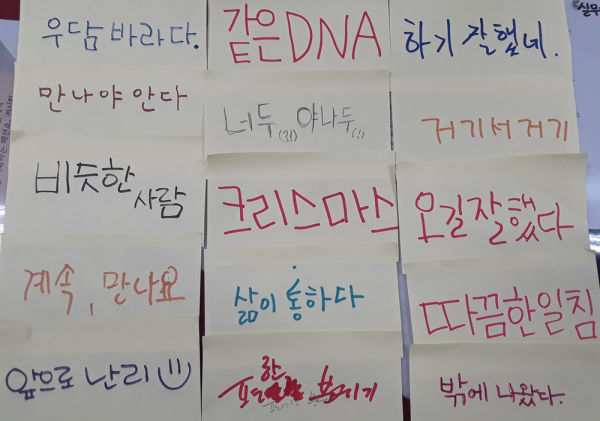 우담바라다.
같은DNA
하기 잘했네.
만나야 안다
너두(?!), 야나두(!)
거기서 거기
비듯한
사람
크리스마스
오길잘했다
계속, 만나요
삶이 통하다
따끔한일침
앞으로 난리
한
밖에 나왔다.